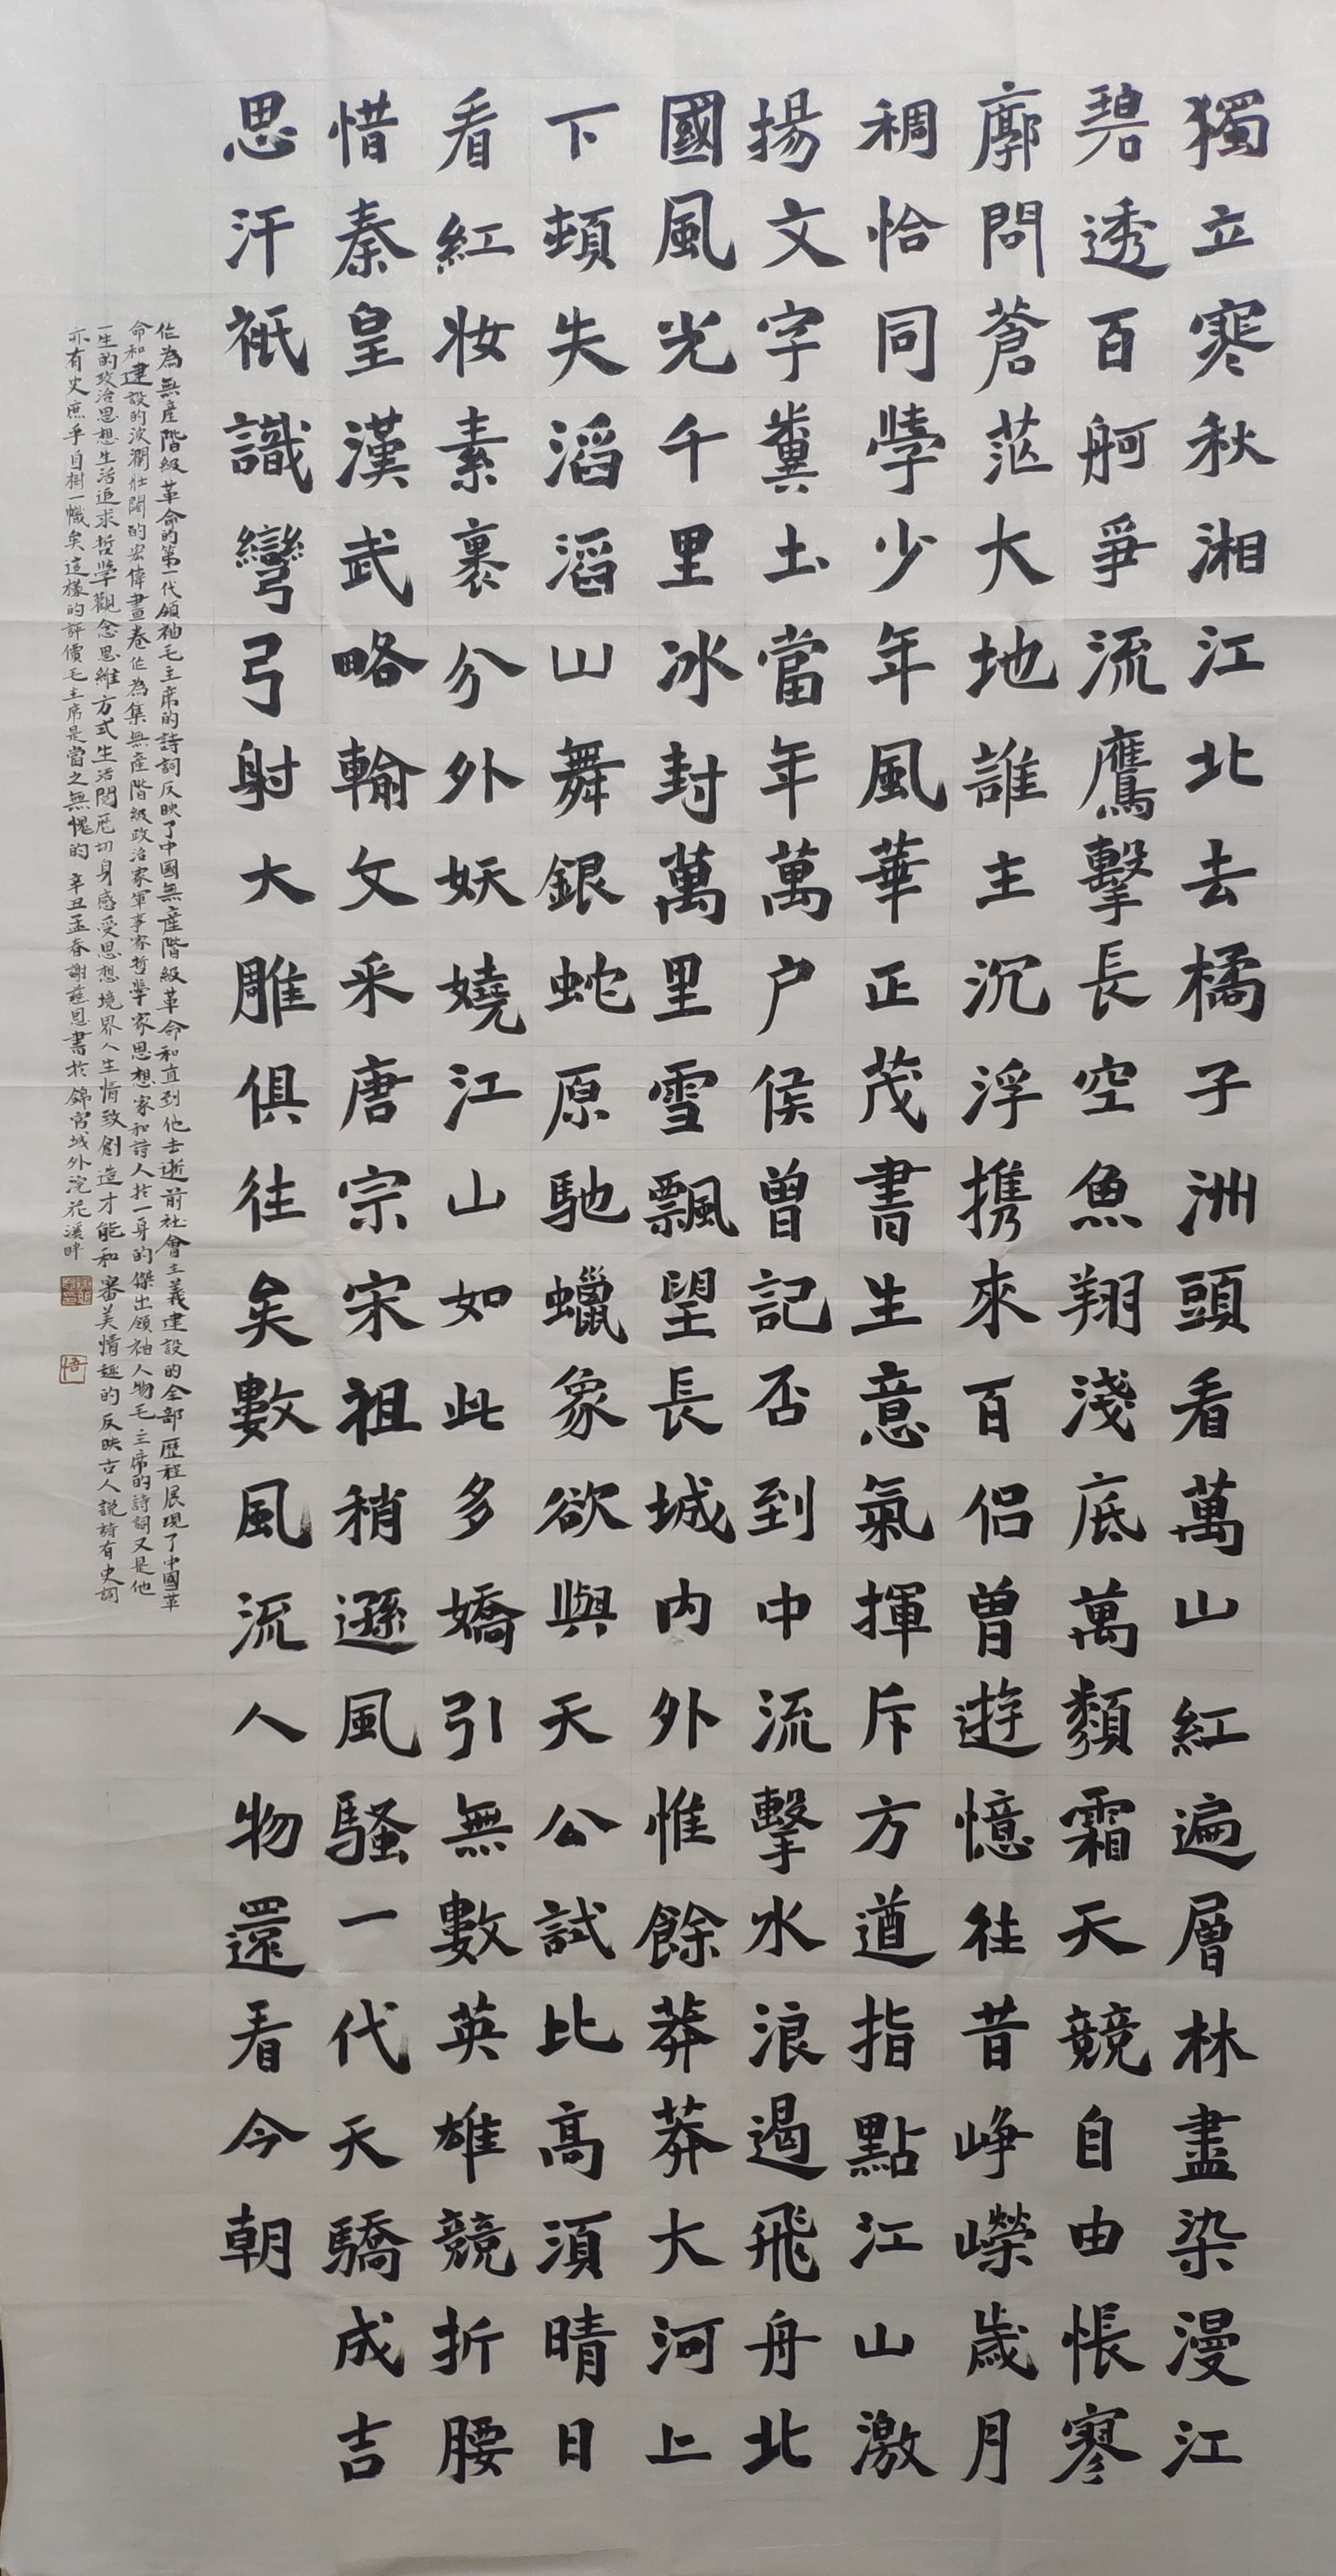 獨立寒秋湘江北去橘子洲頭看萬山紅遍層林盡染漫江
碧透百舸爭流鷹擊長空魚翔淺底萬類霜天競自由悵寥
廓問蒼茫大地誰主沉浮携來百侶曾遊憶往昔崢嶸歲月
稠恰同學少年風華正茂書生意氣揮斥方遒指點江山激
揚文字糞土當年萬户侯曾記否到中流擊水浪遏飛舟北
國風光千里冰封萬里雪飄望長城内外惟餘莽莽大河上
下頓失滔滔山舞銀蛇原馳蠟象欲與天公試比高須晴日
看紅妝素裹分外妖嬈江山如此多嬌引無數英雄競折腰
惜秦皇漢武略輸文采唐宗宋祖稍遜風騷一代天驕成吉
思汗祇識彎弓射大雕俱往矣數風流人物還看今朝
作為無產階級革命的第一代領袖毛主席的詩詞反映了中國無產階級革命和直到他去逝前社會主義建設的全部歷程展現了中國革
命和建設的波瀾壯闊的宏偉畫卷作為集無產階級政治家軍事家哲學家思想家和詩人於一身的傑出領袖人物毛主席的詩詞又是他
一生的政治思想生活追求哲學觀念思維方式生活閱歷切身感受思想境界人生情致創造才能和審美情趣的反映古人説詩有史詞
亦有史庶乎自樹一幟矣這樣的評價毛主席是當之無愧的 辛丑孟春謝慈恩書於錦官城外浣花溪畔
悟